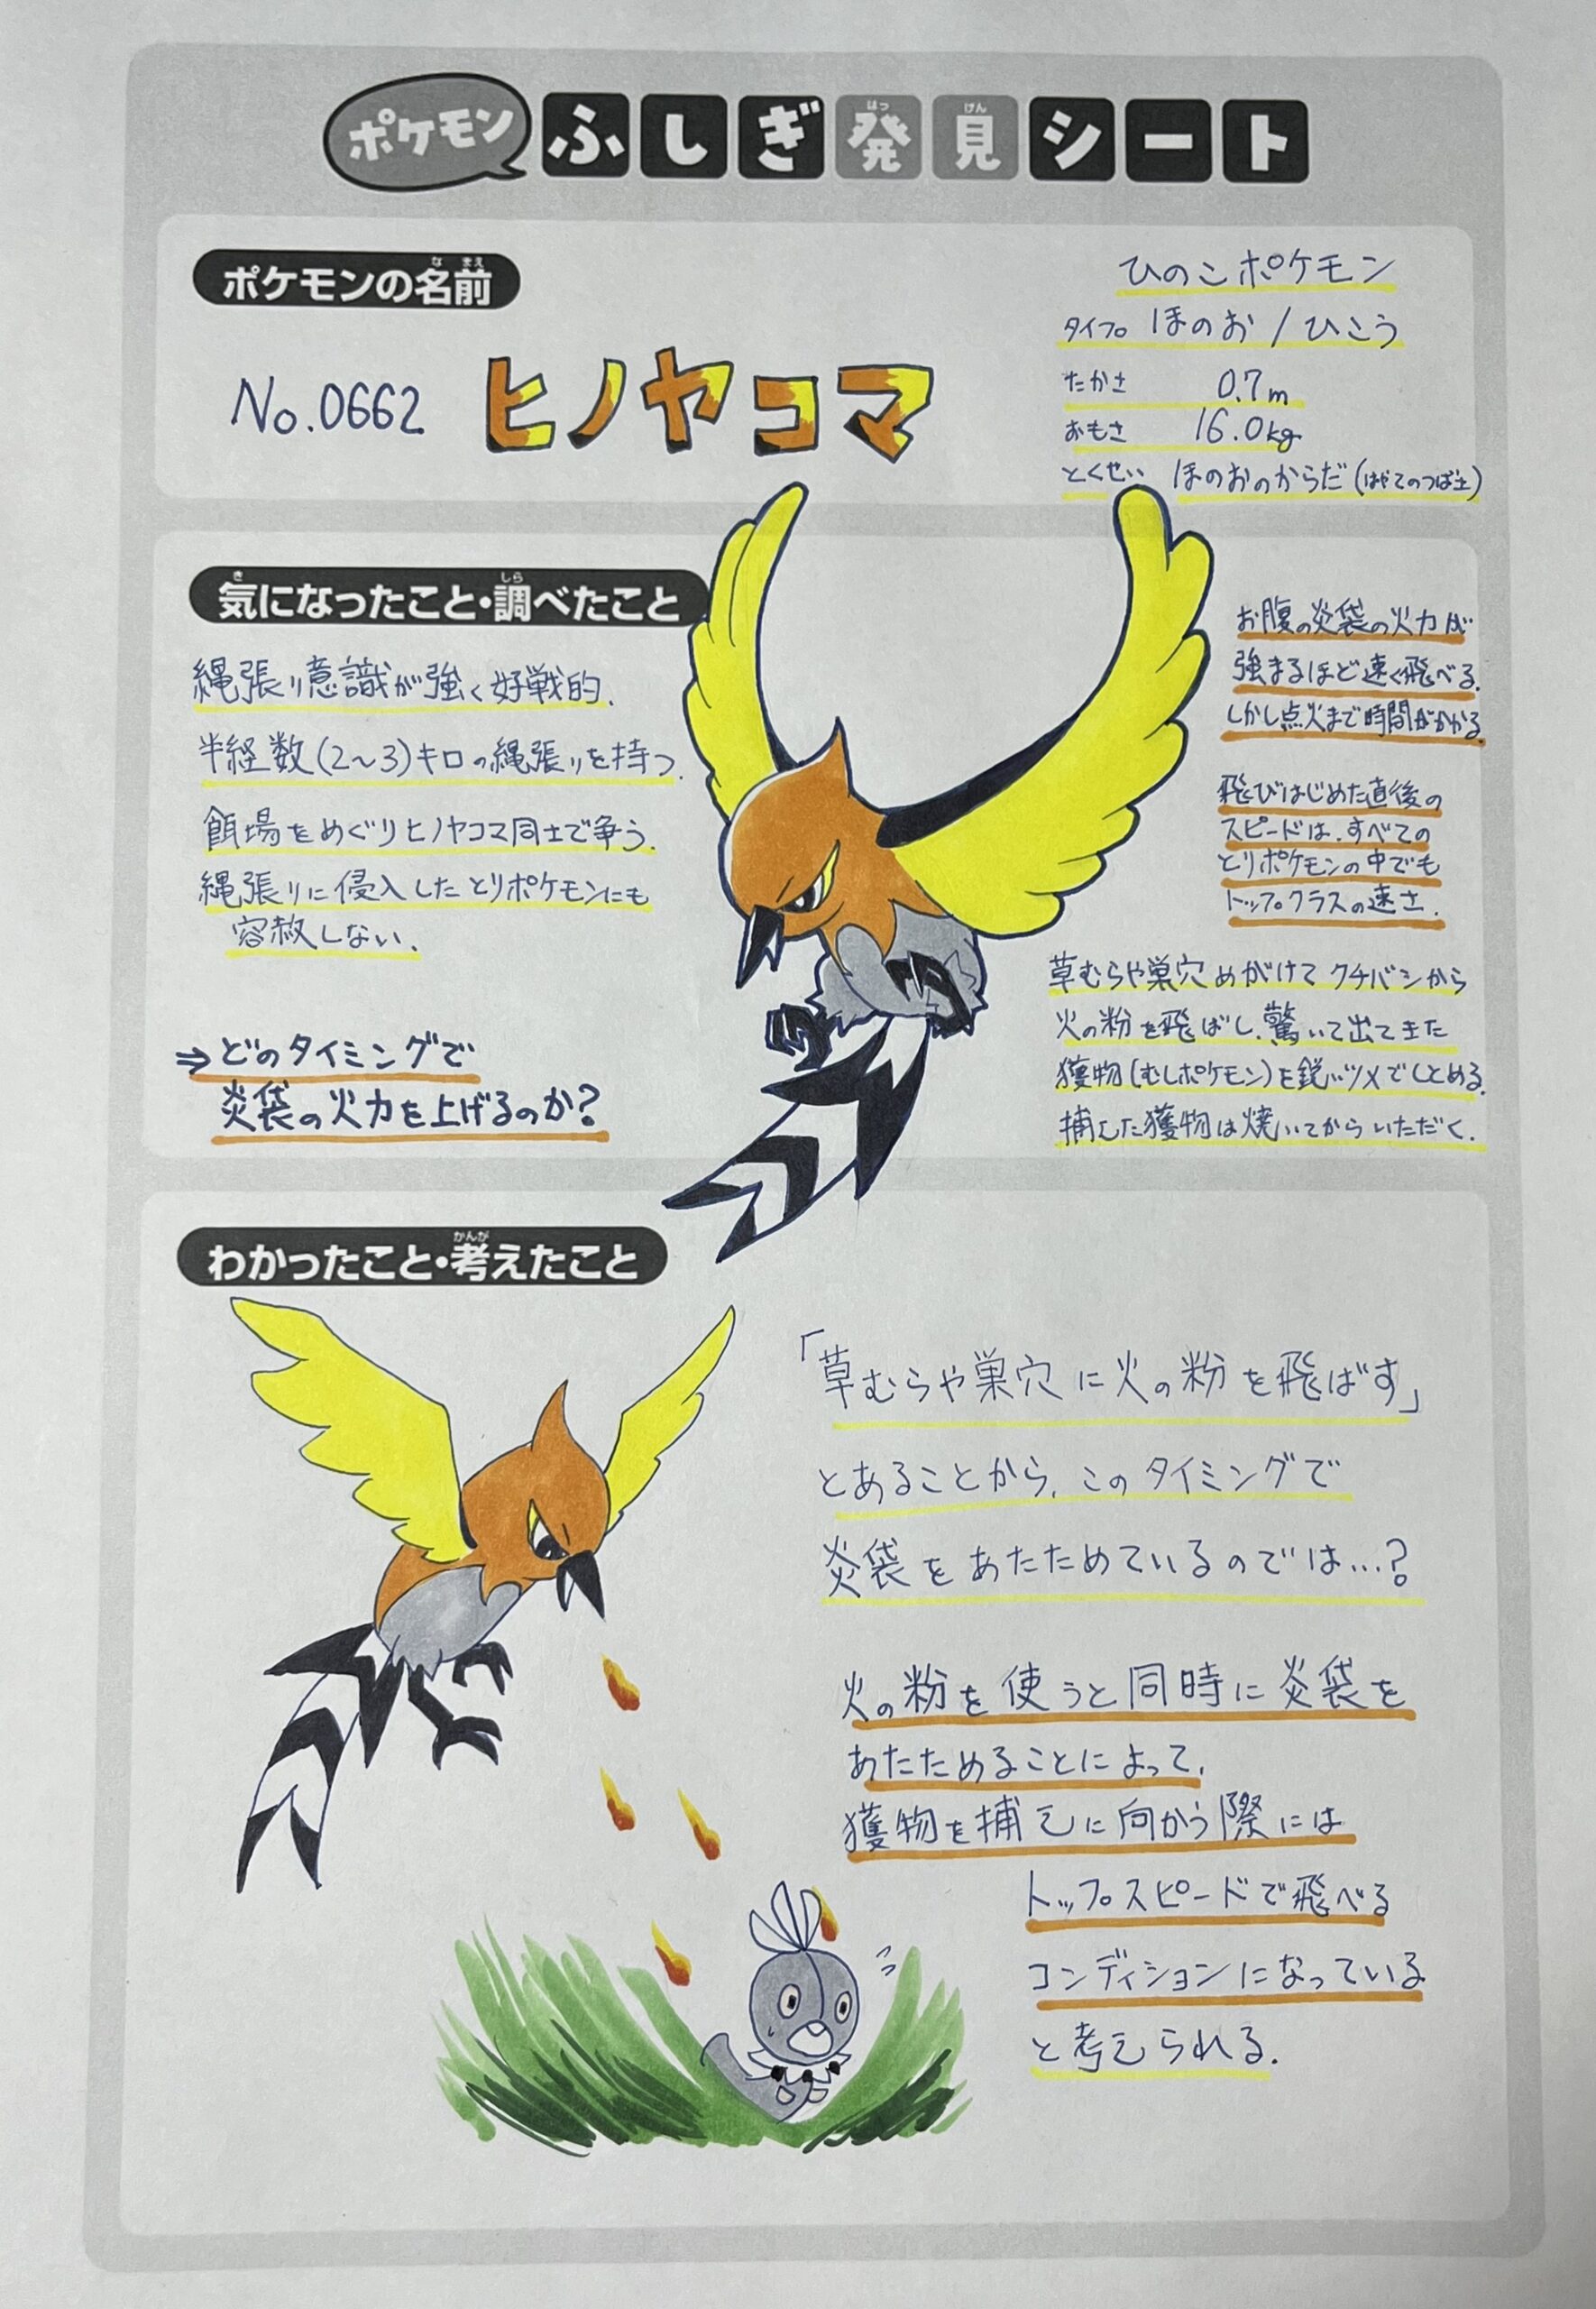 ポケモン ふしぎ発見シート
ポケモンの名前
No.0662 ヒノヤコマ
ひのこポケモン
タイプ ほのお / ひこう
たかさ 0.7m
おもさ 16.0kg
とくせい ほのおのからだ(はやてのつばさ)
気になったこと・調べたこと
縄張り意識が強く好戦的.
半経数(2〜3)キロの縄張りを持つ.
餌場をめぐりヒノヤコマ同士で争う.
縄張りに侵入したとりポケモンにも
容赦しない.
⇒どのタイミングで
炎袋の火力を上げるのか?
お腹の炎袋の火力が
強まるほど速く飛べる.
しかし点火まで時間がかかる.
飛びはじめた直後の
スピードは.すべての
とりポケモンの中でも
トップクラスの速さ.
草むらや巣穴めがけてクチバシから
火の粉を飛ばし.驚いて出てきた
獲物(むしポケモン)を鋭いツメでしとめる.
捕えた獲物は焼いてからいただく.
わかったこと・考えたこと
「草むらや巣穴に火の粉を飛ばす」
とあることから.このタイミングで
炎袋をあたためているのでは…?
火の粉を使うと同時に炎袋を
あたためることによって.
獲物を捕えに向かう際には
トップスピードで飛べる
コンディションになっている
と考えられる.